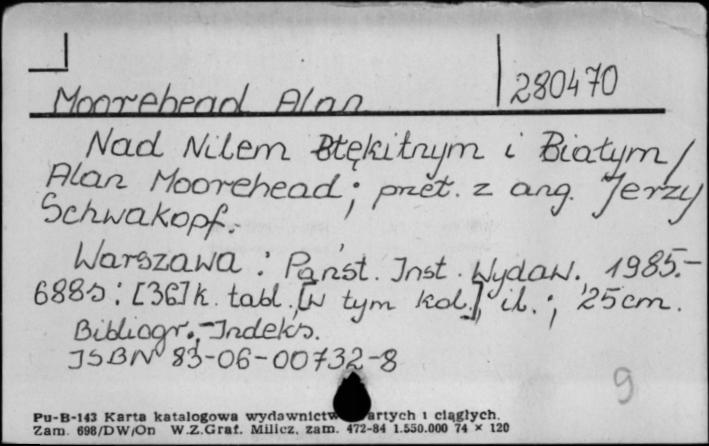 280470
Moorehead Alan
Nad Nilem Błękitnym i Białym /
Alan Moorehead ; przeł. z ang. Jerzy
Schwakopf.
Warszawa : Państ. Inst. Wydaw., 1985.-
688s : [36]k. tabl., [w tym kol.], il. ; 25cm.
Bibliogr., - Indeks.
ISBN 83-06-00732-8
9
Pu-B-143 Karta katalogowa wydawnictw artych i ciągłych.
Zam. 698/DW/On W.Z.Graf. Milicz, zam. 472-84 1.550.000 74 × 120